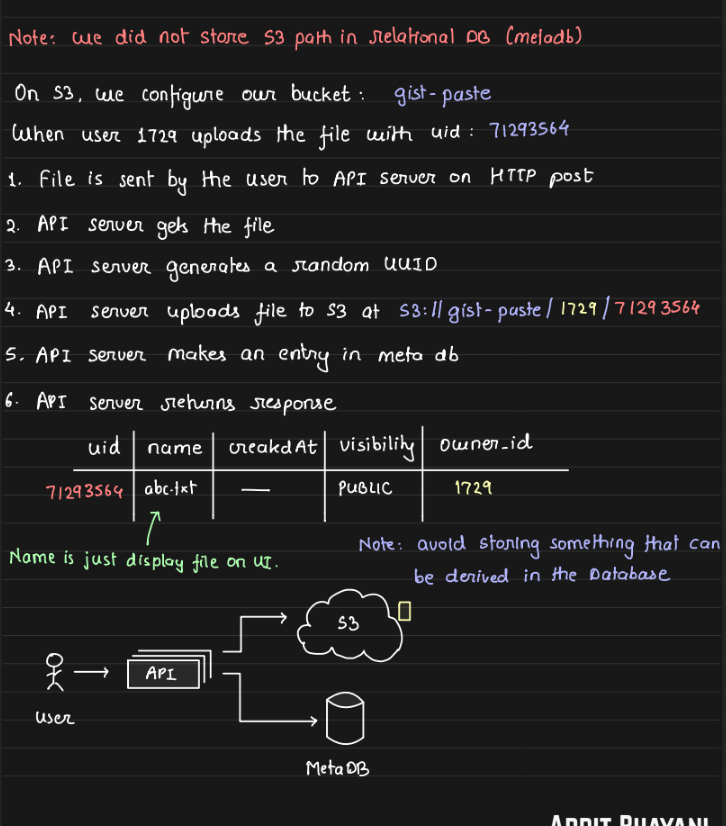 Note: we did not store S3 path in relational DB (metadb)
On S3, we configure our bucket: gist-paste
When user 1729 uploads the file with uid: 71293564
1. File is sent by the user to API server on HTTP post
2. API server gets the file
3. API server generates a random UUID
4. API server uploads file to S3 at S3://gist-paste/1729/71293564
5. API server makes an entry in meta db
6. API server returns response
uid name createdAt visibility owner_id
71293564 abc.txt — PUBLIC 1729
Name is just display file on UI.
Note: avoid storing something that can
be derived in the Database
S3
API
user
MetaDB